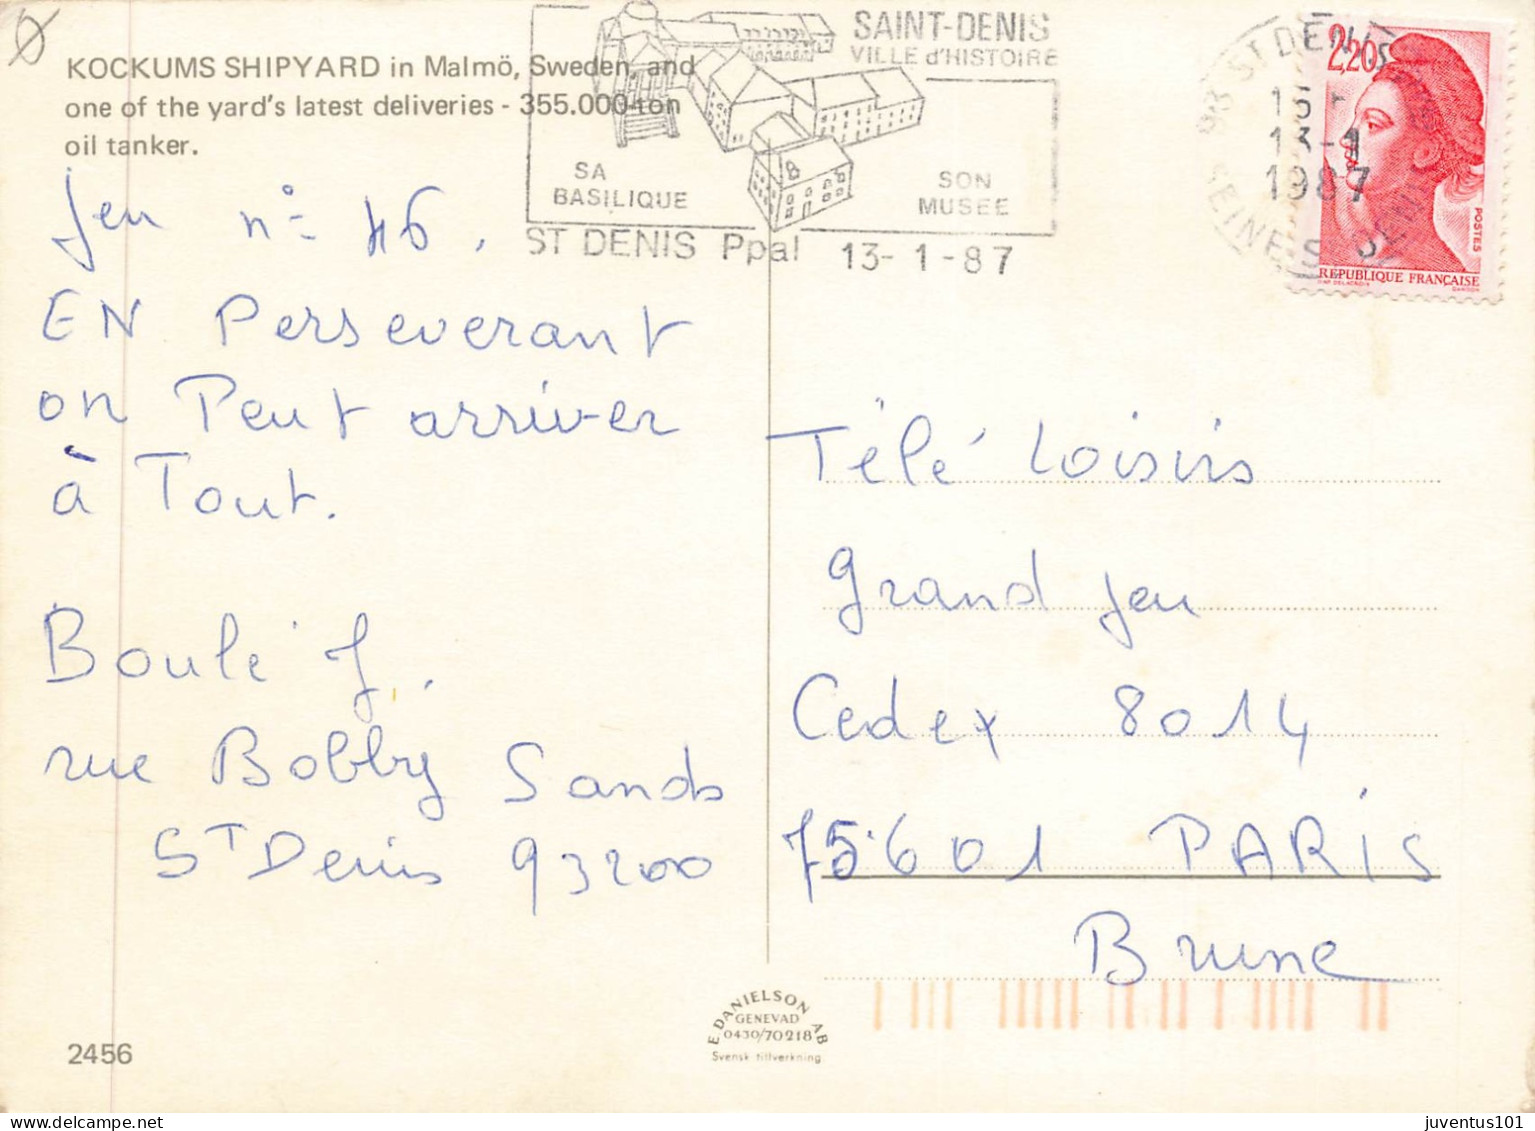 KOCKUMS SHIPYARD in Malmö, Sweden, and
one of the yard's latest deliveries - 355.000 ton
oil tanker.
SAINT-DENIS
VILLE d'HISTOIRE
SA
BASILIQUE
SON
MUSEE
ST DENIS Ppal 13-1-87
93 ST DENIS
13-1
1987
SEINE ST DENIS
2,20
POSTES
REPUBLIQUE FRANÇAISE
Jeu n° 46.
EN Perseverant
on Peut arriver
à Tout.
Boulé J.
rue Bobby Sands
ST Denis 93200
Télé Loisirs
grand jeu
Cedex 8014
75601 PARIS
Brune
E. DANIELSON AB
GENEVAD
0430/70218
Svensk tillverkning
2456
juventus101